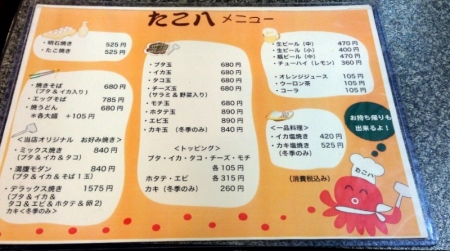 たこ八 メニュー
・明石焼き 525円
・たこ焼き 525円
・焼きそば 680円
(ブタ&イカ入り)
・エッグそば 785円
・焼うどん 680円
＊各大盛 +105円
<当店オリジナル お好み焼き>
・ミックス焼き 840円
(ブタ&イカ&タコ)
・満腹モダン 840円
(ブタ&イカ&そば1玉)
・デラックス焼き 1575円
(ブタ&イカ&
タコ&エビ&ホタテ&卵2)
カキ<冬季のみ>
・ブタ玉 680円
・イカ玉 680円
・タコ玉 680円
・チーズ玉 680円
(サラミ&野菜入り)
・モチ玉 680円
・ホタテ玉 890円
・エビ玉 890円
・カキ玉 (冬季のみ) 840円
<トッピング>
ブタ・イカ・タコ・チーズ・モチ
各105円
ホタテ・エビ 各315円
カキ (冬季のみ) 260円
・生ビール (中) 470円
・生ビール (小) 400円
・瓶ビール (中) 470円
・チューハイ (レモン) 360円
・オレンジジュース 105円
・ウーロン茶 105円
・コーラ 105円
<一品料理>
・イカ塩焼き 420円
・カキ塩焼き 525円
(冬季のみ)
(消費税込み)
お持ち帰りも
出来るよ!
たこハ